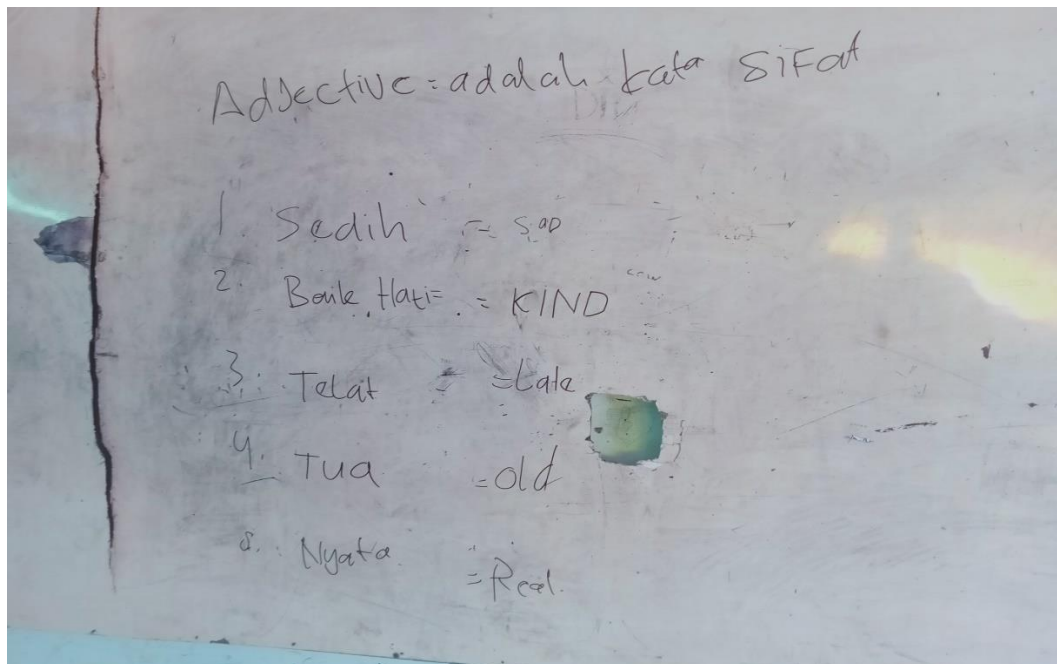 Adjective = adalah kata sifat
1. Sedih = SAD
2. Baik Hati = = KIND
3. Telat = Late
4. Tua = old
5. Nyata = Real.